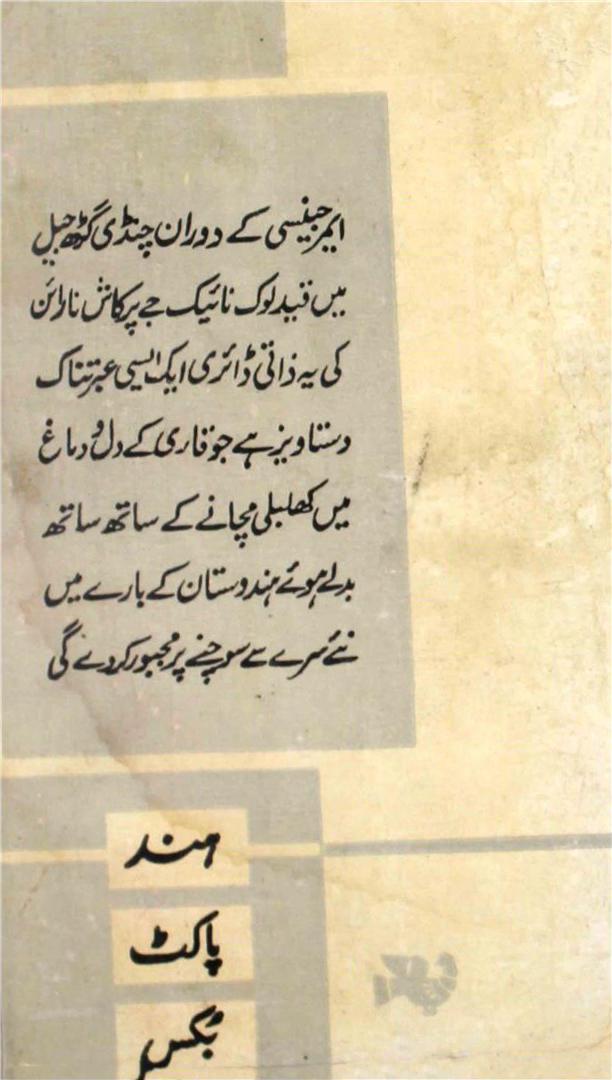 ایمرجینسی کے دوران چنڈی گڑھ جیل
میں قید لوک نائیک جے پرکاش نارائن
کی یہ ذاتی ڈائری ایک ایسی عبرتناک
دستاویز ہے جو قاری کے دل و دماغ
میں کھلبلی مچانے کے ساتھ ساتھ
بدلے ہوئے ہندوستان کے بارے میں
نئے سرے سے سوچنے پر مجبور کر دے گی
ہند
پاکٹ
بکس